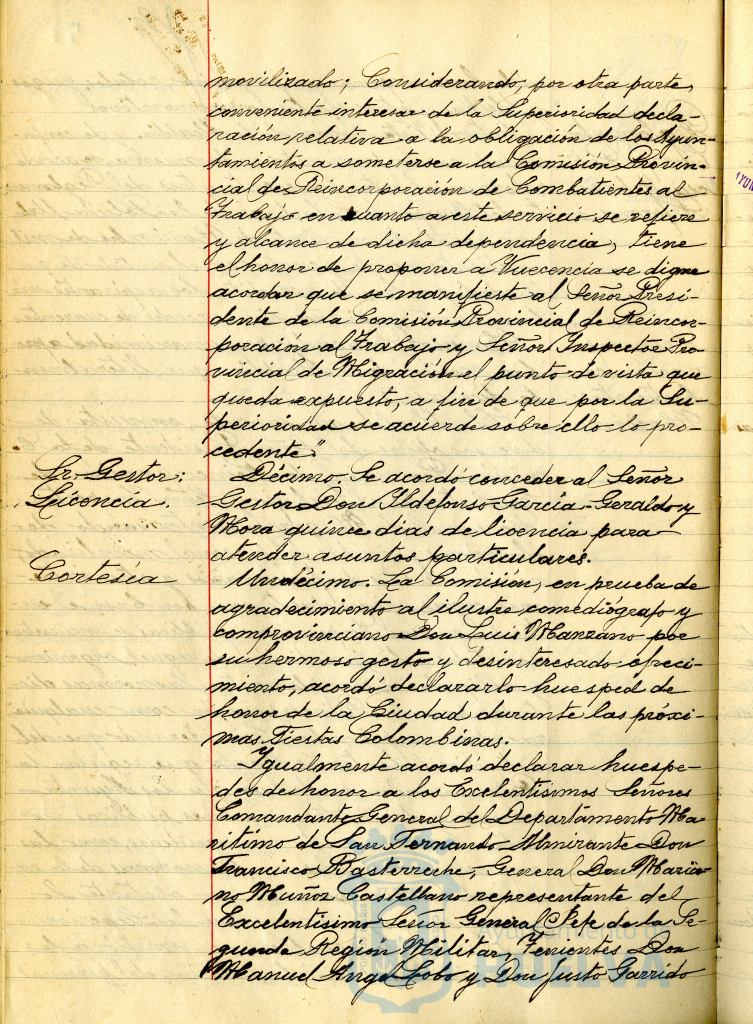 movilizado; Considerando, por otra parte,
conveniente interesar de la Superioridad decla-
ración relativa a la obligación de los Ayun-
tamientos a someterse a la Comisión Provin-
cial de Reincorporación de Combatientes al
Trabajo en cuanto a este servicio se refiere
y alcance de dicha dependencia, tiene
el honor de proponer a Vuecencia se digne
acordar que se manifieste al Señor Presi-
dente de la Comisión Provincial de Reincor-
poración al Trabajo y Señor Inspector Pro-
vincial de Migración el punto de vista que
queda expuesto, a fin de que por la Su-
perioridad se acuerde sobre ello lo pro-
cedente"
Sr. Gestor:
Licencia.
Décimo. Se acordó conceder al Señor
Gestor Don Ildefonso García-Geraldo y
Mora quince dias de licencia para
atender asuntos particulares.
Cortesía
Undécimo. La Comisión, en prueba de
agradecimiento al ilustre comediógrafo y
comprovinciano Don Luis Manzano por
su hermoso gesto y desinteresado ofreci-
miento, acordó declararlo huesped de
honor de la Ciudad durante las próxi-
mas Fiestas Colombinas.
Igualmente acordó declarar huespe-
des de honor a los Excelentísimos Señores
Comandante General del Departamento Ma-
ritimo de San Fernando Almirante Don
Francisco Basterreche, General Don Maria-
no Muñoz Castellano representante del
Excelentísimo Señor General Jefe de la Se-
gunda Región Militar, Tenientes Don
Manuel Angel Lobo y Don Justo Garrido